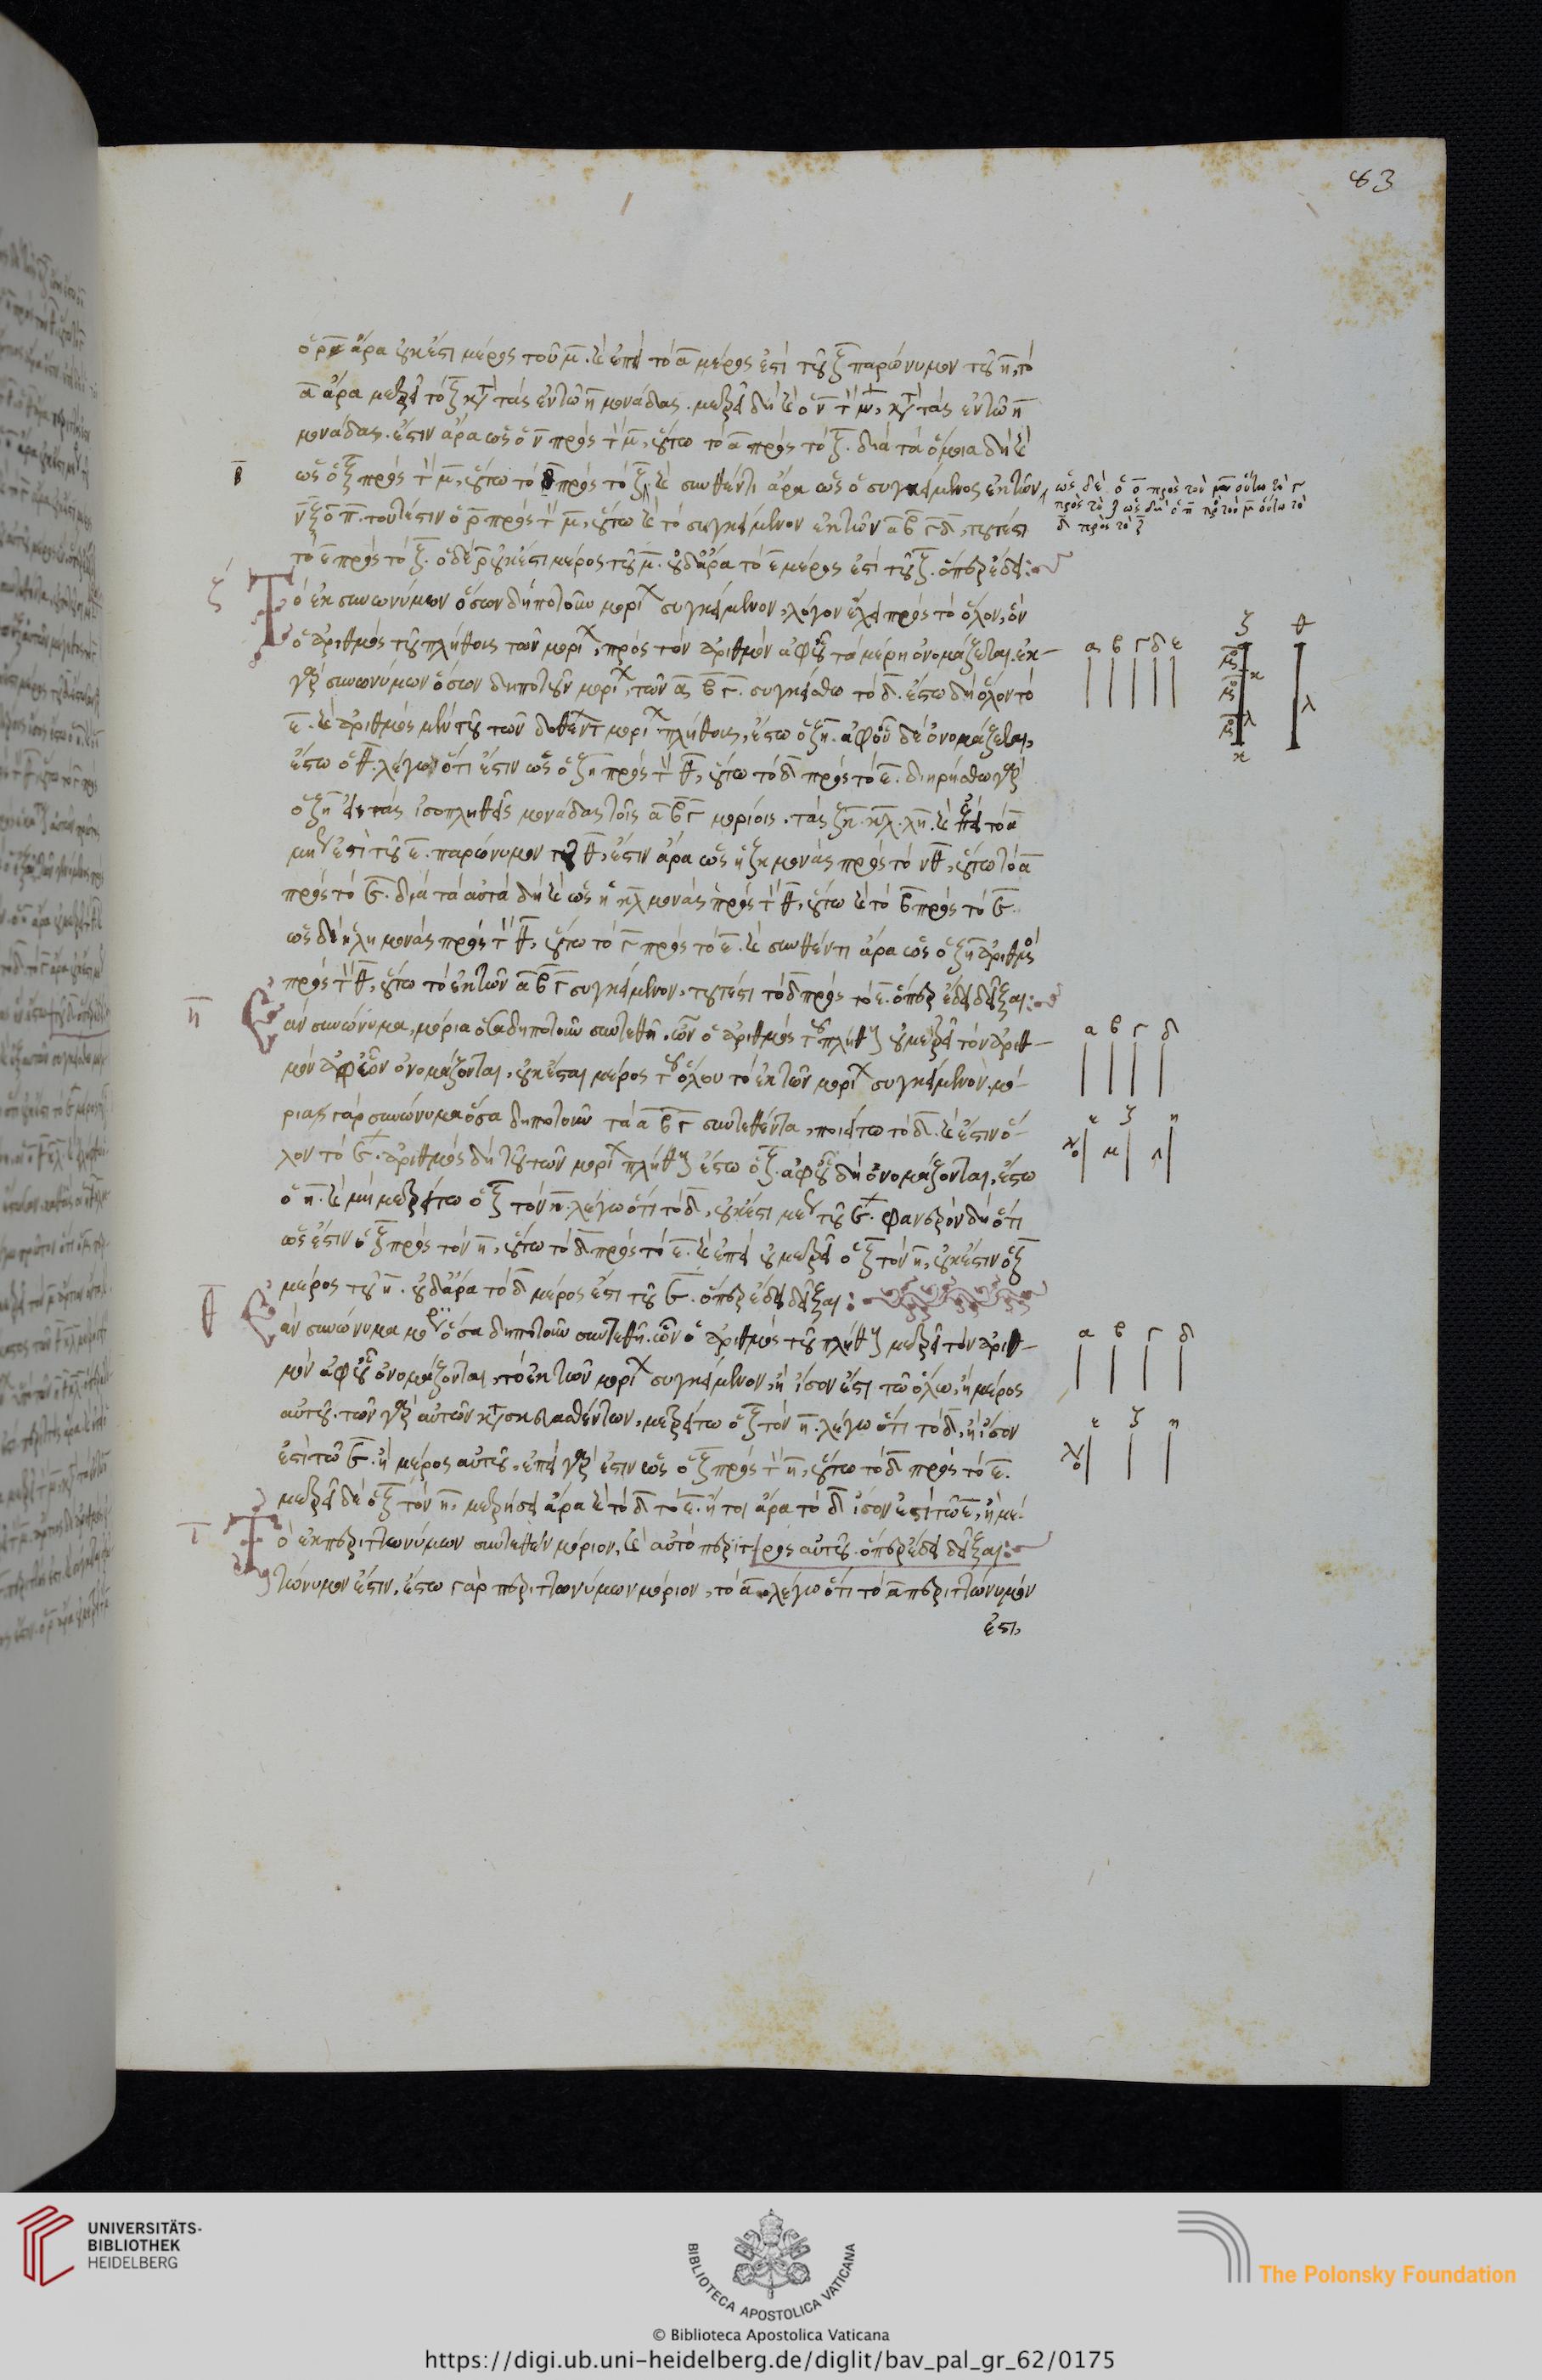 83
ὁ ρ ἄρα οὐκ ἔστι μέρος τοῦ μ. καὶ ἐπεὶ τὸ α μέρος ἐστὶ τοῦ ξ παρώνυμον τῷ η, τὸ
α ἄρα μετρεῖ τὸ ξ κατὰ τὰς ἐν τῷ η μονάδας. μετρεῖ δὴ καὶ ὁ ν τὸν μ, κατὰ τὰς ἐν τῷ η
μονάδας. ἔστιν ἄρα ὡς ὁ ν πρὸς τὸν μ, οὕτω τὸ α πρὸς τὸ ξ. διὰ τὰ ὅμοια δὴ καὶ
ὡς ὁ ξ πρὸς τὸν μ, οὕτω τὸ β πρὸς τὸ ξ, καὶ συνθέντι ἄρα ὡς ὁ συγκείμενος ἐκ τῶν
ν ξ ο π. τουτέστιν ὁ ρ πρὸς τὸν μ, οὕτω καὶ τὸ συγκείμενον ἐκ τῶν α β γ δ, τουτέστι
τὸ ε πρὸς τὸ ξ. ὁ δὲ ρ οὐκ ἔστι μέρος τοῦ μ. οὐδ' ἄρα τὸ ε μέρος ἐστὶ τοῦ ξ. ὅπερ ἔδει
β
ὡς δὲ ὁ ο πρὸς τὸν μ οὕτω τὸ γ
πρὸς τὸ ξ ὡς δὲ ὁ π πρὸς τὸν μ οὕτω τὸ
δ πρὸς τὸ ξ
ζ
Τὸ ἐκ συνωνύμων ὅσων δήποτ' οὖν μορι συγκείμενον, λόγον ἔχει πρὸς τὸ ὅλον, ὃν
ὁ ἀριθμὸς τοῦ πλήθους τῶν μορι, πρὸς τὸν ἀριθμὸν ἀφ' οὗ τὰ μέρη ὀνομάζεται. ἐκ
γὰρ συνωνύμων ὅσων δηποτοῦν μορι, τῶν α β γ. συγκείσθω τὸ δ. ἔστω δὴ ὅλον τὸ
ε. καὶ ἀριθμὸς μὲν τοῦ τῶν δοθέντ μορι πλήθους, ἔστω ὁ ζη. ἀφ' οὗ δὲ ὀνομάζεται,
ἔστω ὁ θ. λέγω ὅτι ἐστὶν ὡς ὁ ζη πρὸς τὸν θ, οὕτω τὸ δ πρὸς τὸ ε. διῃρήσθω γὰρ
ὁ ζη εἰς τὰς ἰσοπληθεῖς μονάδας τοῖς α β γ μορίοις. τὰς ζκ. κλ. λη. καὶ ἐπεὶ τὸ α
ἐστὶ τοῦ ε. παρώνυμον τῷ θ, ἔστιν ἄρα ὡς ἡ ζκ μονὰς πρὸς τὸν θ, οὕτω τὸ α
πρὸς τὸ ε. διὰ τὰ αὐτὰ δὴ καὶ ὡς ἡ κλ μονὰς πρὸς τὸν θ, οὕτω καὶ τὸ β πρὸς τὸ ε
ὡς δὲ ἡ λη μονὰς πρὸς τὸν θ, οὕτω τὸ γ πρὸς τὸ ε. καὶ συνθέντι ἄρα ὡς ὁ ζη ἀριθμὸς
πρὸς τὸν θ, οὕτω τὸ ἐκ τῶν α β γ συγκείμενον, τουτέστι τὸ δ πρὸς τὸ ε. ὅπερ ἔδει δεῖξαι
α β γ δ ε
ζ θ
κ λ λ
η
Ἐὰν συνώνυμα, μόρια ὁσαδηποτοῦν συντεθῇ, ὧν ὁ ἀριθμὸς τοῦ πλήθους οὐ μετρεῖ τὸν ἀριθ
μὸν ἀφ' οὗ ὀνομάζονται, οὐκ ἔσται μέρος τοῦ ὅλου τὸ ἐκ τῶν μορι συγκείμενον. μό
ρια γὰρ συνώνυμα ὅσα δηποτοῦν τὰ α β γ συντεθέντα, ποιείτω τὸ δ. καὶ ἔστιν ὅ
λον τὸ ε. ἀριθμὸς δὴ τοῦ τῶν μορι πλήθους ἔστω ὁ ζ. ἀφ' οὗ δὴ ὀνομάζονται, ἔστω
ὁ η. καὶ μὴ μετρείτω ὁ ζ τὸν η. λέγω ὅτι τὸ δ, οὐκ ἔστι τοῦ ε. φανερὸν δὴ ὅτι
ὡς ἔστιν ὁ ζ πρὸς τὸν η, οὕτω τὸ δ πρὸς τὸ ε. καὶ ἐπεὶ οὐ μετρεῖ ὁ ζ τὸν η, οὐκ ἔστιν ὁ ζ
μέρος τοῦ η. οὐδ' ἄρα τὸ δ μέρος ἐστὶ τοῦ ε. ὅπερ ἔδει δεῖξαι
α β γ δ
ε ζ η
θ
Ἐὰν συνώνυμα ὅσα δηποτοῦν συντεθῇ. ὧν ὁ ἀριθμὸς τοῦ πλήθους μετρεῖ τὸν ἀριθ
μὸν ἀφ' οὗ ὀνομάζονται, τὸ ἐκ τῶν μορι συγκείμενον, ἢ ἴσον ἐστὶ τῷ ὅλῳ, ἢ μέρος
αὐτοῦ. τῶν γὰρ αὐτῶν κατασκευασθέντων, μετρείτω ὁ ζ τὸν η. λέγω ὅτι τὸ δ, ἢ ἴσον
ἐστὶ τῷ ε. ἢ μέρος αὐτοῦ. ἐπεὶ γάρ ἐστιν ὡς ὁ ζ πρὸς τὸν η, οὕτω τὸ δ πρὸς τὸ ε.
μετρεῖ δὲ ὁ ζ τὸν η, μετρήσει ἄρα καὶ τὸ δ τὸ ε. ἤτοι ἄρα τὸ δ ἴσον ἐστὶ τῷ ε, ἢ μέ
ρος αὐτοῦ. ὅπερ ἔδει δεῖξαι
α β γ δ
ε ζ η
ι
Τὸ ἐκ περιττωνύμων συντεθὲν μόριον, καὶ αὐτὸ περιτ
τώνυμον ἐστιν. ἔστω γὰρ περιττωνύμων μόριον, τὸ α λέγω ὅτι τὸ α περιττώνυμόν
ἐστι,
UNIVERSITÄTS-
BIBLIOTHEK
HEIDELBERG
BIBLIOTECA APOSTOLICA VATICANA
The Polonsky Foundation
© Biblioteca Apostolica Vaticana
https://digi.ub.uni-heidelberg.de/diglit/bav_pal_gr_62/0175